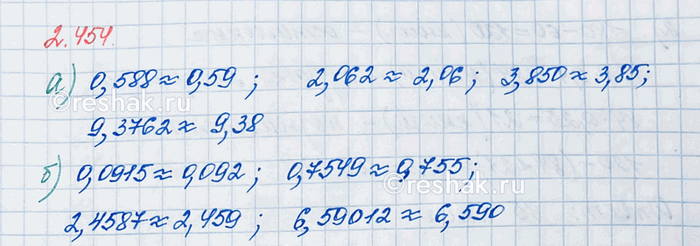 2.454.
а) 0,588 ≈ 0,59 ; 2,062 ≈ 2,06 ; 3,850 ≈ 3,85 ;
9,3762 ≈ 9,38
б) 0,0915 ≈ 0,092 ; 0,7549 ≈ 0,755 ;
2,4587 ≈ 2,459 ; 6,59012 ≈ 6,590
© reshak.ru
© reshak.ru